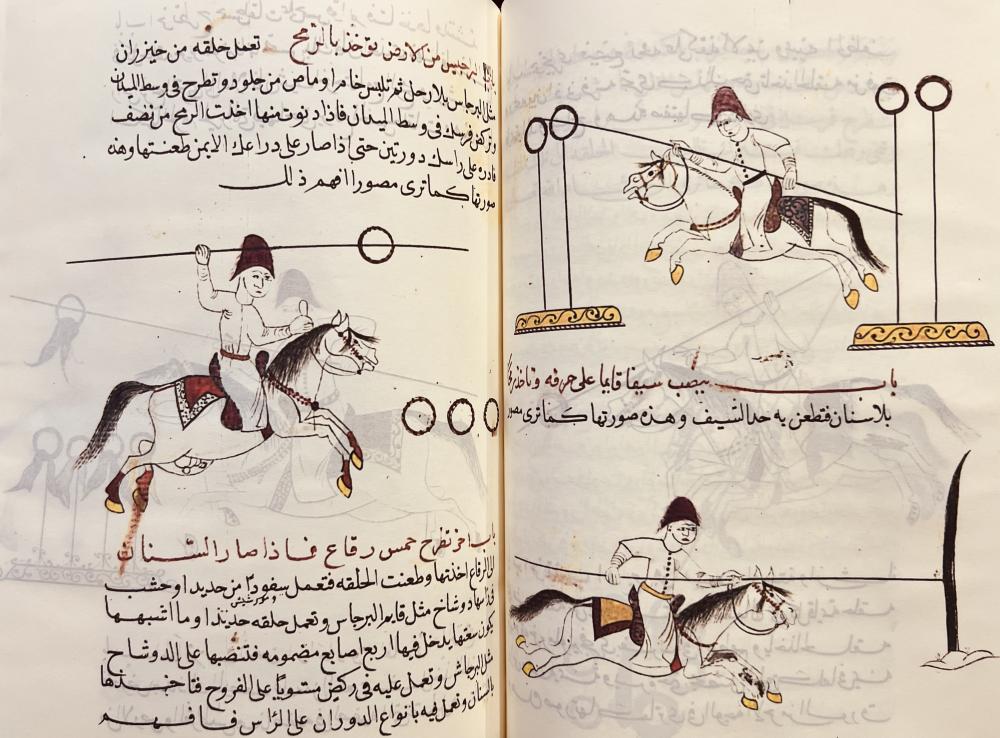 باب
ينصب سيفا قايما على حرفه وتاخذ
بلاسنان فتطعن به حد السيف وهذه صورتها كما ترى
من الارض تؤخذ بالرمح تعمل حلقه من خيزران
مثل البرجاس بلا رحل ثم تلبس خاما او ماص من جلود وتطرح في وسط الميدان
وتركض فرسك في وسط الميدان فاذا دنوت منها اخذت الرمح من نصف
فادره على راسك دورتين حتى اذا صار على دراعك الايمن طعنتها وهذه
صورتها كما ترى مصورا افهم ذلك
باب اخر تطرح خمس رقاع فاذا صار السنان
الى الرقاع اخذتها وطعنت الحلقه فتعمل سفود من حديد او خشب
دوشاخ مثل قايم البرجاس وتعمل حلقه حديد او ما اشبهها
يكون سعتها يدخل فيها اربع اصابع مضمومه فتنصبها على الدوشاخ
مثل البرجاس وتعمل عليه في ركض مستويا على الفروح فتاخذها
بالسنان وتعمل فيه بانواع الدوران على الراس فافهم